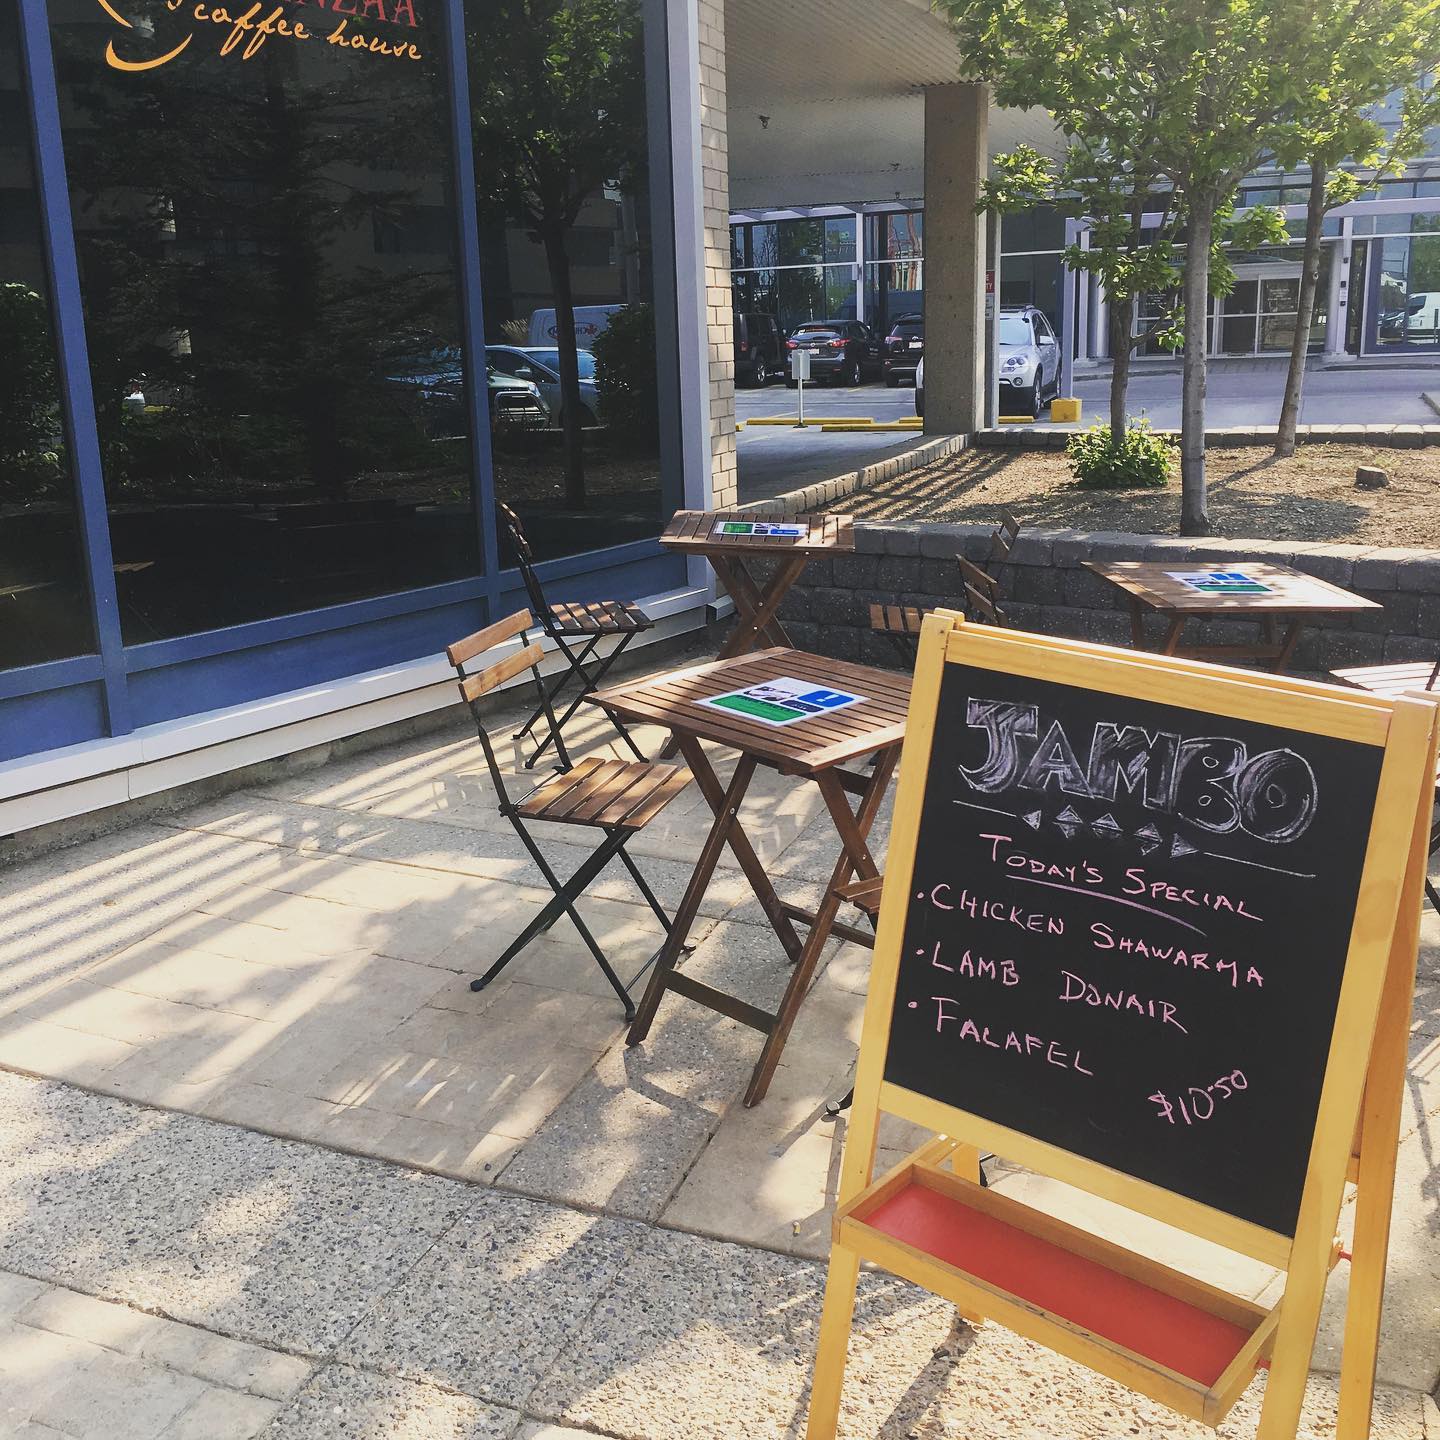 coffee house
JAMBO
TODAY'S SPECIAL
• CHICKEN SHAWARMA
• LAMB DONAIR
• FALAFEL
$10.50